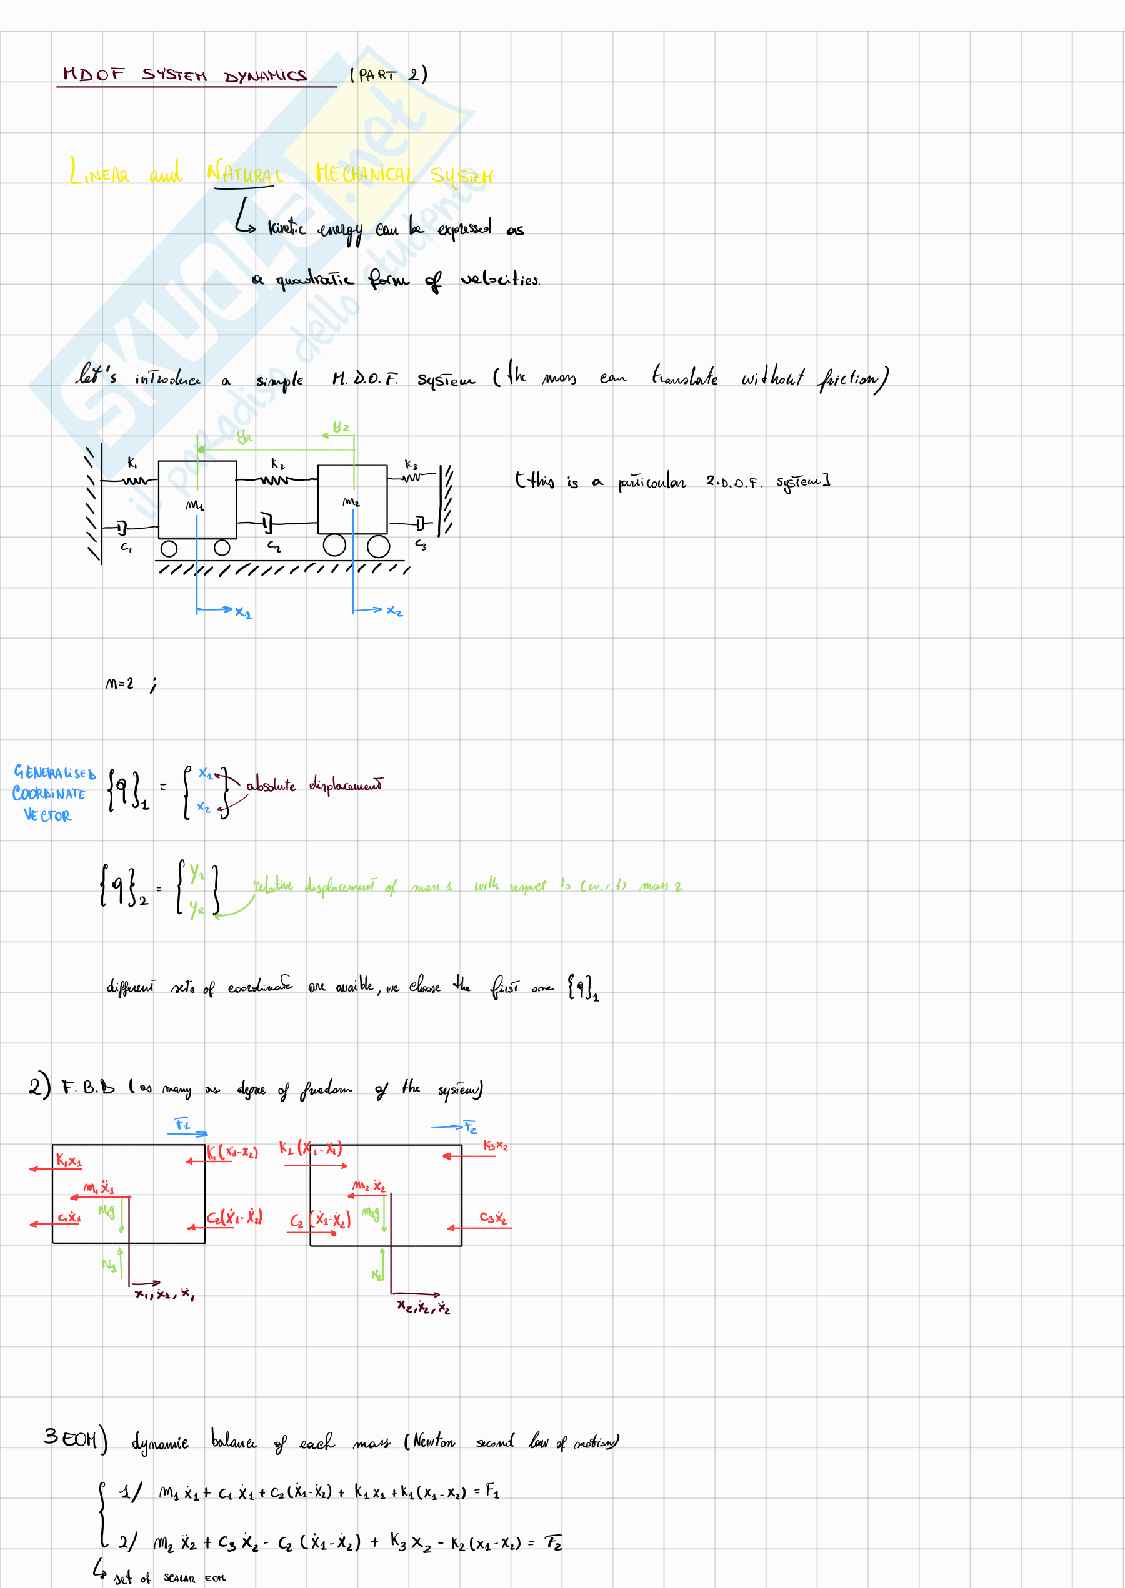 MDOF SYSTEM DYNAMICS (PART 2)
LINEAR and NATURAL MECHANICAL SYSTEM
↳ kinetic energy can be expressed as
a quadratic form of velocities.
let's introduce a simple M.D.O.F. system (the mass can translate without friction)
y₁ y₂
K₁ K₂ K₃
m₁ m₂
(this is a particular 2.D.O.F. system]
C₁ C₂ C₃
x₁ x₂
n=2 ;
GENERALISED COORDINATE VECTOR {q}₁ = {x₁ x₂} absolute displacement
{q}₂ = {y₁ y₂} relative displacement of mass 1 with respect to (w.r.t) mass 2
different sets of coordinate are avaible, we choose the first one {q}₁
2) F.B.D (as many as degree of freedom of the system)
F₁ F₂
K₁x₁ K₁(x₁-x₂) K₂(x₁-x₂) K₃x₂
m₁ẍ₁ m₂ẍ₂
M₁g M₂g
c₁ẋ₁ C₂(ẋ₁-ẋ₂) C₂(ẋ₁-ẋ₂) C₃ẋ₂
x₁, ẋ₁, ẍ₁ x₂, ẋ₂, ẍ₂
3 EOM) dynamic balance of each mass (Newton second law of motions)
1/ m₁ẍ₁ + c₁ẋ₁ + c₂(ẋ₁-ẋ₂) + K₁x₁ + K₁(x₁-x₂) = F₁
2/ m₂ẍ₂ + C₃ẋ₂ - C₂(ẋ₁-ẋ₂) + K₃x₂ - K₂(x₁-x₂) = F₂
↳ set of SCALAR EOM
SKUOLA.net
il paradiso dello studente